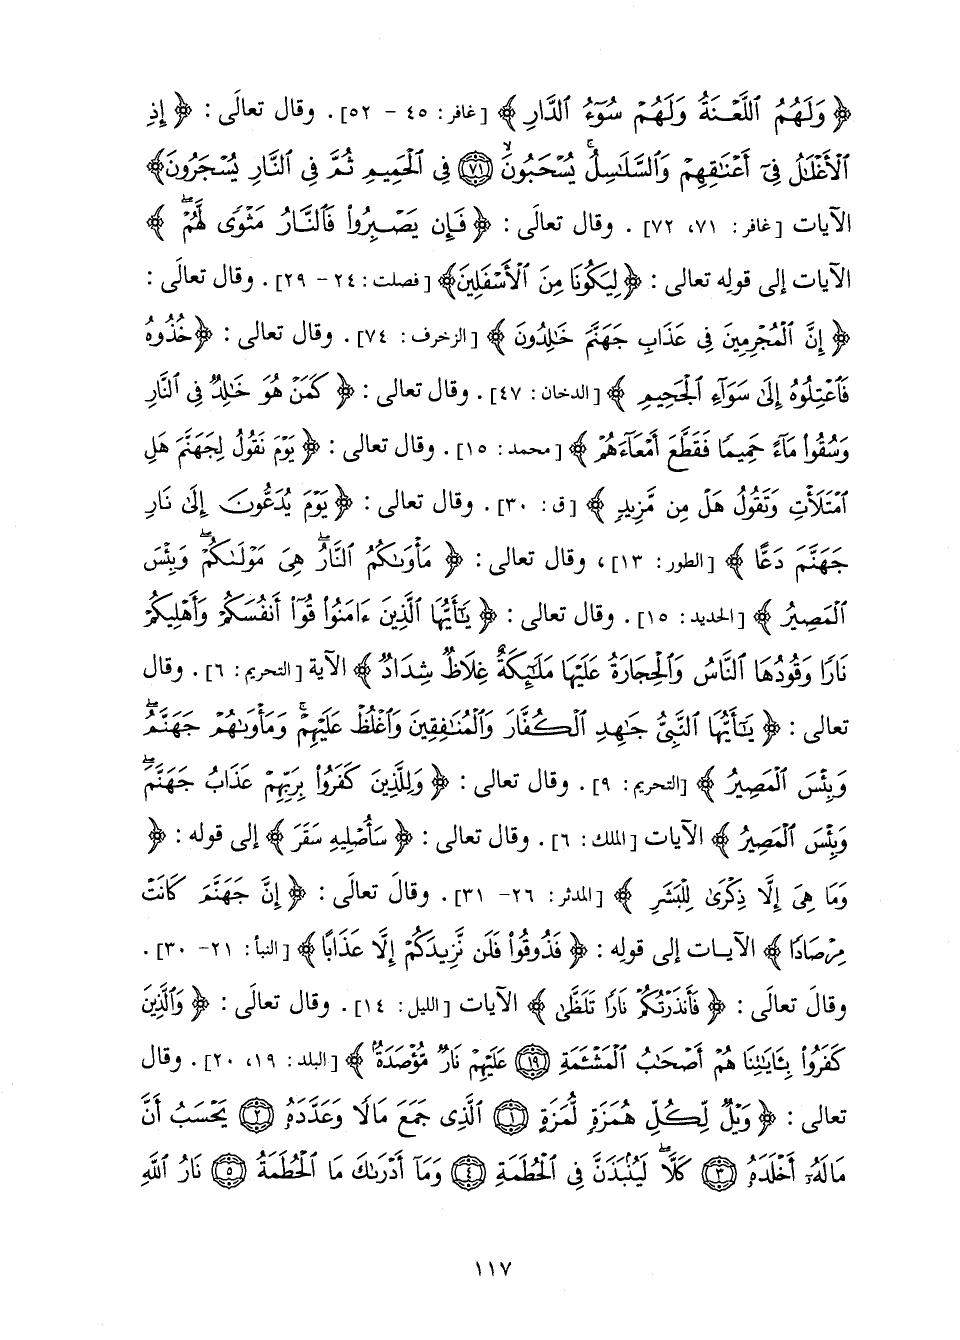 ﴿ وَلَهُمُ ٱللَّعْنَةُ وَلَهُمْ سُوٓءُ ٱلدَّارِ ﴾ [غافر: ٤٥ - ٥٢]. وقال تعالَى : ﴿ إِذِ
ٱلْأَغْلَٰلُ فِىٓ أَعْنَٰقِهِمْ وَٱلسَّلَٰسِلُ يُسْحَبُونَ ﴿٧١﴾ فِى ٱلْحَمِيمِ ثُمَّ فِى ٱلنَّارِ يُسْجَرُونَ﴾
الآيات [غافر: ٧١، ٧٢] . وقال تعالَى : ﴿ فَإِن يَصْبِرُوا۟ فَٱلنَّارُ مَثْوًى لَّهُمْ ۖ ﴾
الآيات إلى قولِه تعالى : ﴿ لِيَكُونَا مِنَ ٱلْأَسْفَلِينَ﴾ [فصلت: ٢٤ - ٢٩]. وقال تعالَى :
﴿ إِنَّ ٱلْمُجْرِمِينَ فِى عَذَابِ جَهَنَّمَ خَٰلِدُونَ ﴾ [الزخرف: ٧٤]. وقال تعالى : ﴿خُذُوهُ
فَٱعْتِلُوهُ إِلَىٰ سَوَآءِ ٱلْجَحِيمِ ﴾ [الدخان: ٤٧]. وقال تعالى : ﴿ كَمَنْ هُوَ خَٰلِدٌ فِى ٱلنَّارِ
وَسُقُوا۟ مَآءً حَمِيمًا فَقَطَّعَ أَمْعَآءَهُمْ ﴾ [محمد: ١٥]. وقال تعالى : ﴿ يَوْمَ نَقُولُ لِجَهَنَّمَ هَلِ
ٱمْتَلَأْتِ وَتَقُولُ هَلْ مِن مَّزِيدٍ ﴾ [ق: ٣٠]. وقال تعالى : ﴿ يَوْمَ يُدَعُّونَ إِلَىٰ نَارِ
جَهَنَّمَ دَعًّا ﴾ [الطور: ١٣]، وقال تعالى : ﴿ مَأْوَىٰكُمُ ٱلنَّارُ ۖ هِىَ مَوْلَىٰكُمْ ۖ وَبِئْسَ
ٱلْمَصِيرُ ﴾ [الحديد: ١٥]. وقال تعالى : ﴿ يَٰٓأَيُّهَا ٱلَّذِينَ ءَامَنُوا۟ قُوٓا۟ أَنفُسَكُمْ وَأَهْلِيكُمْ
نَارًا وَقُودُهَا ٱلنَّاسُ وَٱلْحِجَارَةُ عَلَيْهَا مَلَٰٓئِكَةٌ غِلَاظٌ شِدَادٌ ﴾ الآية [التحريم: ٦]. وقال
تعالى : ﴿ يَٰٓأَيُّهَا ٱلنَّبِىُّ جَٰهِدِ ٱلْكُفَّارَ وَٱلْمُنَٰفِقِينَ وَٱغْلُظْ عَلَيْهِمْ ۚ وَمَأْوَىٰهُمْ جَهَنَّمُ ۖ
وَبِئْسَ ٱلْمَصِيرُ ﴾ [التحريم: ٩]. وقال تعالى : ﴿ وَلِلَّذِينَ كَفَرُوا۟ بِرَبِّهِمْ عَذَابُ جَهَنَّمَ ۖ
وَبِئْسَ ٱلْمَصِيرُ ﴾ الآيات [الملك: ٦]. وقال تعالى : ﴿ سَأُصْلِيهِ سَقَرَ ﴾ إلى قوله : ﴿
وَمَا هِىَ إِلَّا ذِكْرَىٰ لِلْبَشَرِ ﴾ [المدثر: ٢٦- ٣١]. وقالَ تعالَى : ﴿ إِنَّ جَهَنَّمَ كَانَتْ
مِرْصَادًا ﴾ الآيات إلى قولِه : ﴿ فَذُوقُوا۟ فَلَن نَّزِيدَكُمْ إِلَّا عَذَابًا ﴾ [النبأ: ٢١- ٣٠].
وقالَ تعالَى : ﴿ فَأَنذَرْتُكُمْ نَارًا تَلَظَّىٰ ﴾ الآيات [الليل: ١٤]. وقال تعالَى : ﴿ وَٱلَّذِينَ
كَفَرُوا۟ بِـَٔايَٰتِنَا هُمْ أَصْحَٰبُ ٱلْمَشْـَٔمَةِ ﴿١٩﴾ عَلَيْهِمْ نَارٌ مُّؤْصَدَةٌۢ ﴾ [البلد: ١٩، ٢٠]. وقال
تعالى : ﴿ وَيْلٌ لِّكُلِّ هُمَزَةٍ لُّمَزَةٍ ﴿١﴾ ٱلَّذِى جَمَعَ مَالًا وَعَدَّدَهُۥ ﴿٢﴾ يَحْسَبُ أَنَّ
مَالَهُۥٓ أَخْلَدَهُۥ ﴿٣﴾ كَلَّا ۖ لَيُنۢبَذَنَّ فِى ٱلْحُطَمَةِ ﴿٤﴾ وَمَآ أَدْرَىٰكَ مَا ٱلْحُطَمَةُ ﴿٥﴾ نَارُ ٱللَّهِ
١١٧